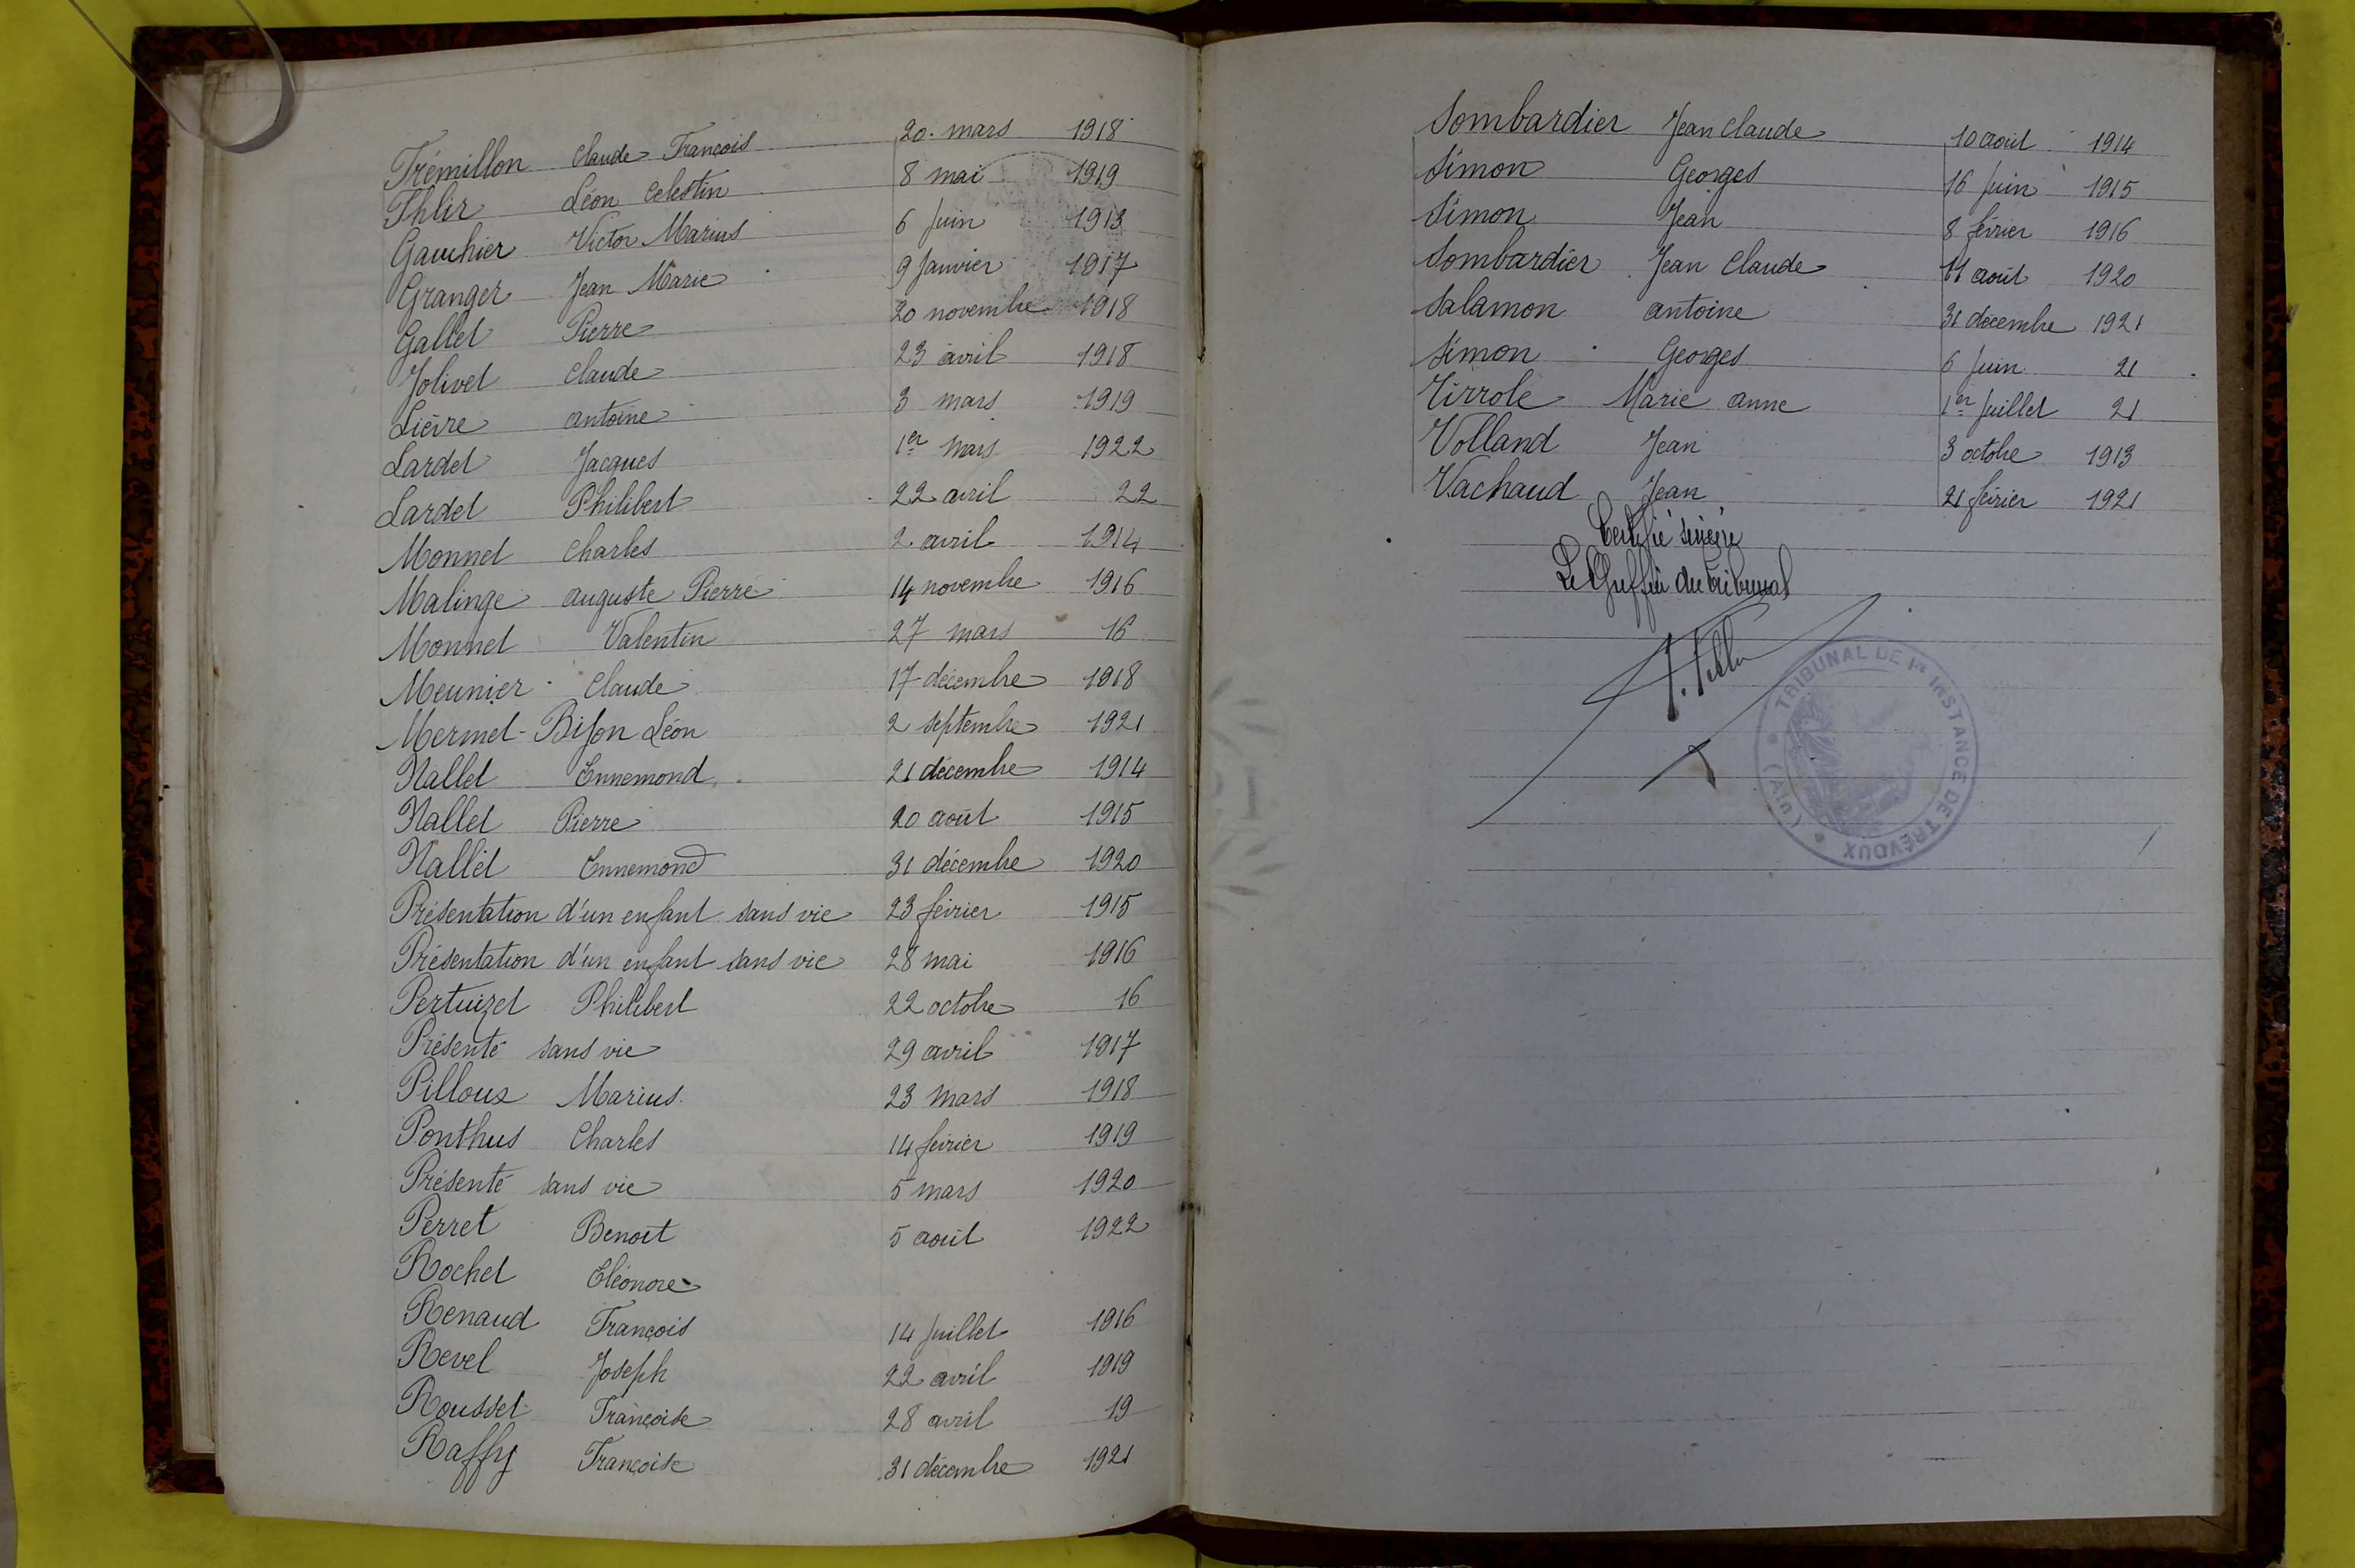 Frémillon Claude François 20 mars 1918
Fhlir Léon Celestin 8 mai 1919
Gauthier Victor Marius 6 Juin 1913
Granger Jean Marie 9 Janvier 1917
Gallet Pierre 20 novembre 1918
Jolivet Claude 23 avril 1918
Lièvre antoine 3 mars 1919
Lardet Jacques 1er mars 1922
Lardet Philibert 22 avril 22
Monnet Charles 2 avril 1914
Malinge auguste Pierre 14 novembre 1916
Monnet Valentin 27 mars 16
Meunier Claude 17 décembre 1918
Mermet-Bijon Léon 2 septembre 1921
Nallet Ennemond 21 décembre 1914
Nallet Pierre 20 août 1915
Nallet Ennemond 31 décembre 1920
Présentation d'un enfant sans vie 23 février 1915
Présentation d'un enfant sans vie 28 mai 1916
Pertuizet Philibert 22 octobre 16
Présenté sans vie 29 avril 1917
Pilloux Marius 23 mars 1918
Ponthus Charles 14 février 1919
Présenté sans vie 5 mars 1920
Perret Benoit 5 août 1922
Rochet Eléonore
Renaud François 14 Juillet 1916
Revel Joseph 22 avril 1919
Rousset Françoise 28 avril 19
Raffy Françoise 31 décembre 1921
Sombardier Jean Claude 10 août 1914
Simon Georges 16 Juin 1915
Simon Jean 8 février 1916
Sombardier Jean Claude 11 août 1920
Salamon antoine 31 décembre 1921
Simon Georges 6 Juin 21
Tirrole Marie anne 1er Juillet 21
Volland Jean 3 octobre 1913
Vachaud Jean 21 février 1921
Certifié sincère
Le Greffier du Tribunal
TRIBUNAL DE 1re INSTANCE DE TRÉVOUX
(Ain)